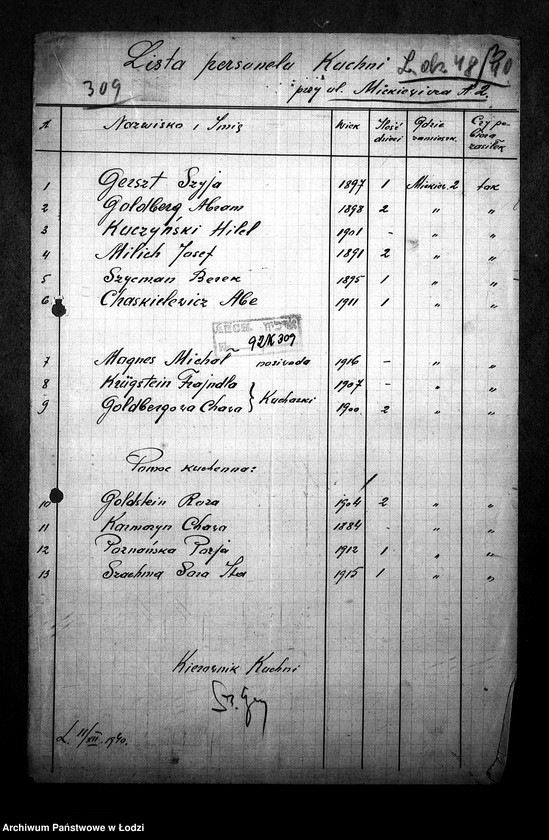 Lista personelu Kuchni L.dz 48/40
309
przy ul. Mickiewicza N. 2.
N Nazwisko i Imię Wiek Ilość dzieci Gdzie zamieszk. Czy pobiera zasiłek
1 Gerszt Szyja 1897 1 Mickiew. 2 tak
2 Goldberg Abram 1898 2 " "
3 Kuczyński Hilel 1901 - " "
4 Milich Josef 1891 2 " "
5 Szycman Berek 1895 1 " "
6 Chaskielewicz Abe 1911 1 " "
92/K 309
7 Magnes Michał nosiwoda 1916 - " "
8 Krügstein Frajndla 1907 - " "
9 Goldbergowa Chawa } Kucharki 1900 2 " "
Pomoc kuchenna:
10 Goldstein Roza 1904 2 " "
11 Karmazyn Chawa 1884 - " "
12 Poznańska Porja 1912 1 " "
13 Szachma Sara Ita 1915 1 " "
Kierownik Kuchni
Ł. 11/XII. 1940.
Archiwum Państwowe w Łodzi